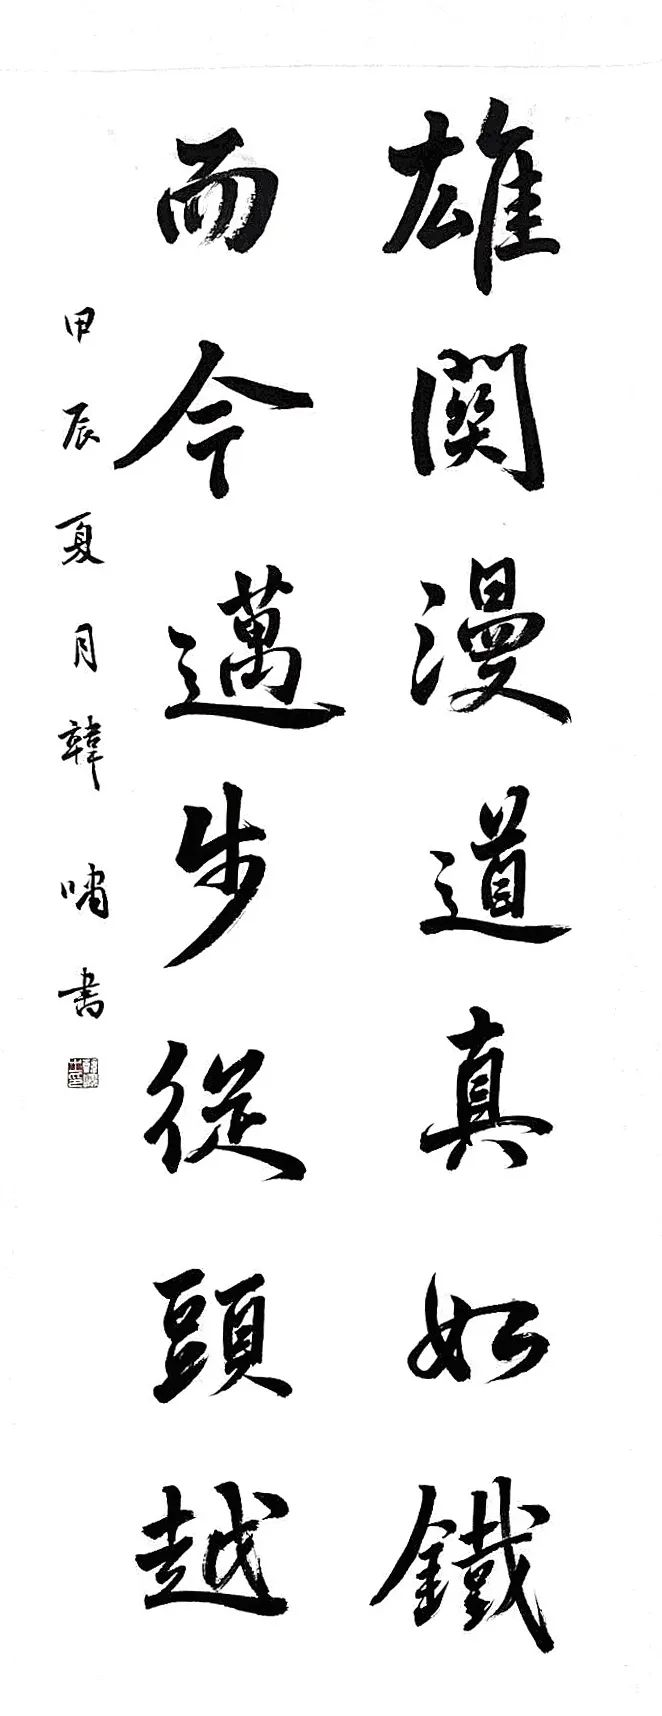 雄關漫道真如鐵
而今邁步從頭越
甲辰夏月韓嘯书